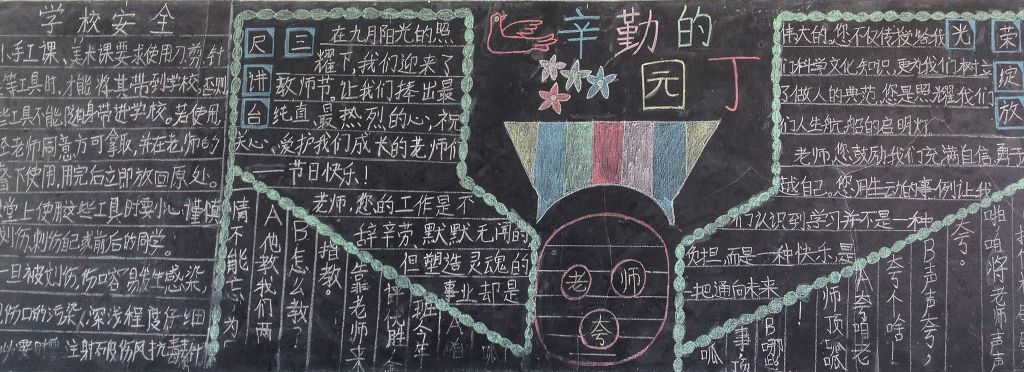 学校安全
手工课、美术课要求使用刀、剪、针
等工具时,才能将其带到学校,否则
些工具不能随身带进学校。若使用
老师同意方可拿取,并在老师的
下使用,用完后立即放回原处。
堂上使用这些工具时要小心谨慎
划伤,刺伤自己或前后的同学。
一旦被划伤,伤口容易发生感染,
伤口的污染、深浅程度仔细
必要时要注射破伤风抗毒
三尺讲台
在九月阳光的照
耀下,我们迎来了
教师节,让我们捧出最
纯真、最热烈的心,祝
关心、爱护我们成长的老师们
节日快乐!
老师,您的工作是不
辞辛劳、默默无闻的
但塑造灵魂的
事业却是
情不能忘
A他教我们两
B怎么教?
指教。
靠老师来
辛勤的
园丁
老师
夸
光荣绽放
伟大的。您不仅传授给我
们科学文化知识,更为我们树立
了做人的典范,您是照耀我们
们人生航船的启明灯
老师,您鼓励我们充满自信,勇于
越自己,您用生动的事例让我
们认识到学习并不是一种
负担,而是一种快乐,是
把通向未来
夸。
B声声夸,
夸个不啥!
A夸咱老
师顶呱
呱
咱将老师声声